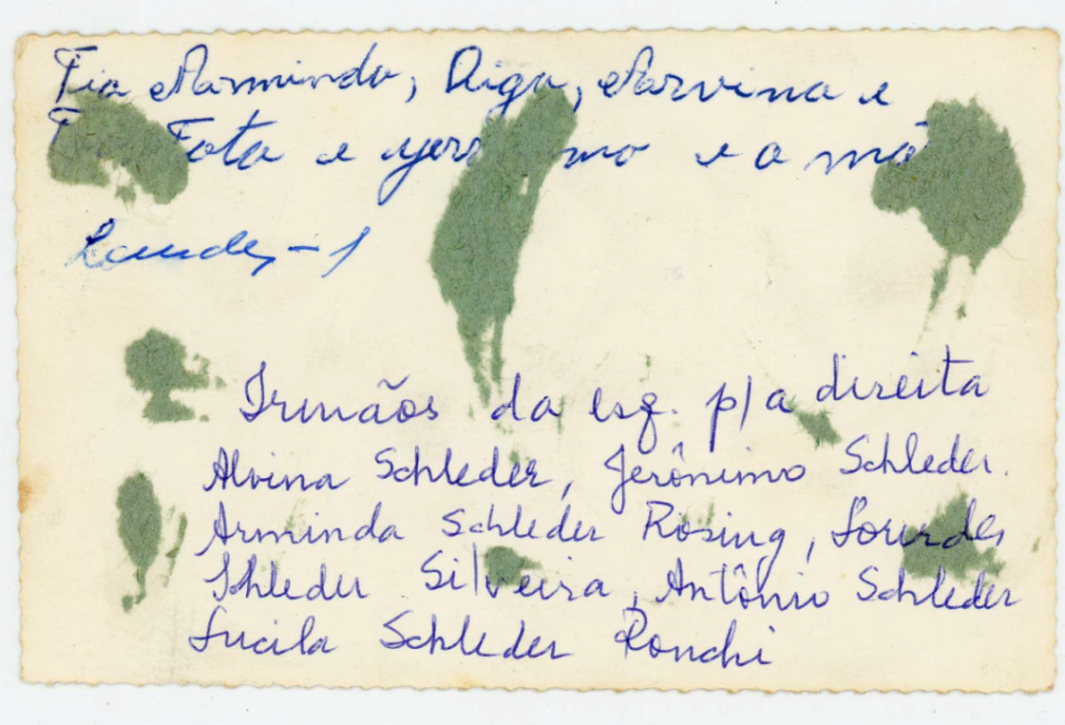 Tia Arminda, Diga, Narvina e
Tota e e a mã
Lourdes - 1
Irmãos da esq. p/a direita
Alvina Schleder, Jerônimo Schleder.
Arminda Schleder Rosing, Lourdes
Schleder Silveira, Antônio Schleder
Lucila Schleder Ronchi